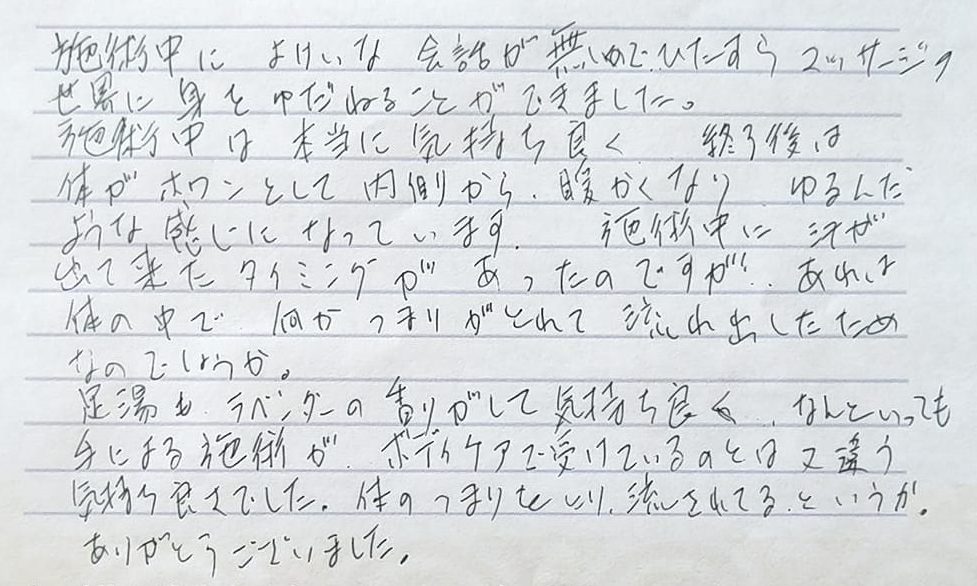 施術中に よけいな 会話が無いのでひたすら マッサージの
世界に身をゆだねることができました。
施術中は 本当に気持ち良く 終了後は
体がホワンとして 内側から、暖かくなり ゆるんだ
ような感じになっています。 施術中に 汗が
出て来たタイミングが あったのですが、あれは
体の中で 何か つまりがとれて 流れ出したため
なのでしょうか。
足湯も、ラベンダーの香りがして気持ち良く、なんといっても
手による施術が、ボディケアで受けているのとは又違う
気持ち良さでした。体のつまりをとり、流されてる、というか。
ありがとうございました。